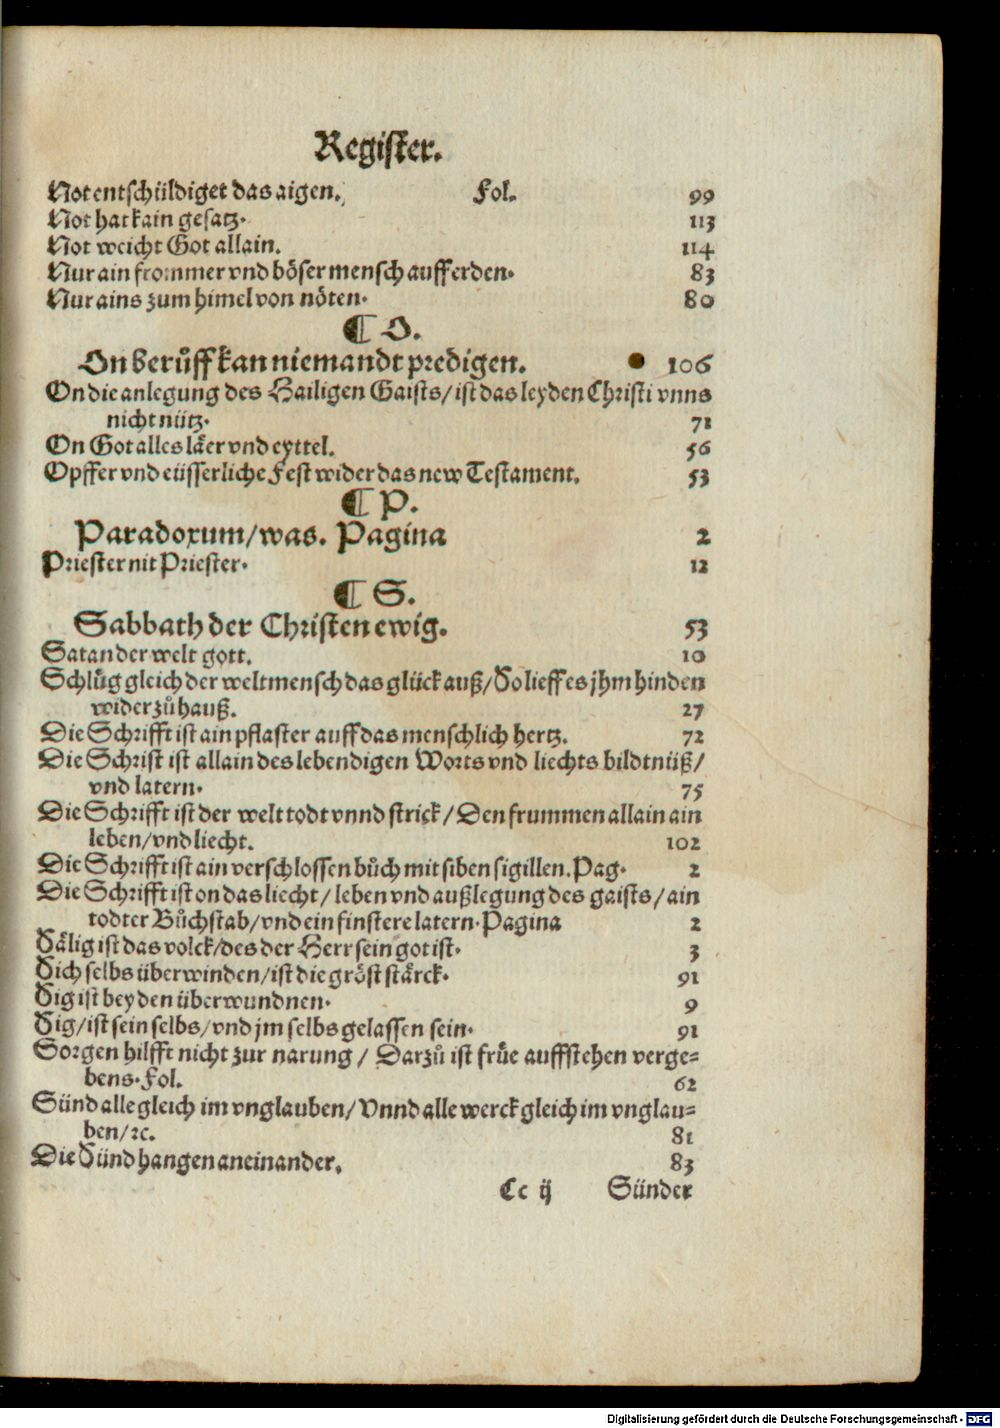 Register.
Not entschüldiget das aigen. Fol. 99
Not hat kain gesatz. 113
Not weicht Got allain. 114
Nur ain frommer vnd böser mensch auff erden. 83
Nur ains zum himel von nöten. 80
¶ O.
On berůff kan niemandt predigen. 106
On die anlegung des Hailigen Gaists/ ist das leyden Christi vnns
nicht nütz. 71
On Got alles läer vnd eyttel. 56
Opffer vnd eüsserliche Fest wider das new Testament. 53
¶ P.
Paradoxum/ was. Pagina 2
Priester nit Priester. 12
¶ S.
Sabbath der Christen ewig. 53
Satan der welt gott. 10
Schlůg gleich der weltmensch das glück auß/ So lieff es jhm hinden
wider zů hauß. 27
Die Schrifft ist ain pflaster auff das menschlich hertz. 72
Die Schrift ist allain des lebendigen Worts vnd liechts bildtnüß/
vnd latern. 75
Die Schrifft ist der welt todt vnnd strick/ Den frummen allain ain
leben/ vnd liecht. 102
Die Schrifft ist ain verschlossen bůch mit siben sigillen. Pag. 2
Die Schrifft ist on das liecht/ leben vnd außlegung des gaists/ ain
todter Bůchstab/ vnd ein finstere latern. Pagina 2
Sälig ist das volck/ des der Herr sein got ist. 3
Sich selbs überwinden/ ist die gröst stärck. 91
Sig ist bey den überwundnen. 9
Sig/ ist sein selbs/ vnd jm selbs gelassen sein. 91
Sorgen hilfft nicht zur narung/ Darzů ist frůe auffstehen verge-
bens. Fol. 62
Sünd alle gleich im vnglauben/ Vnnd alle werck gleich im vnglau-
ben/ ꝛc. 81
Die Sünd hangen aneinander. 83
Cc ij Sünder
Digitalisierung gefördert durch die Deutsche Forschungsgemeinschaft - DFG